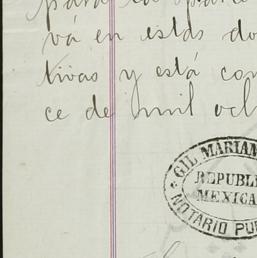 para
vá en estas do
tivas y está con
ce de mil och
GIL MARIAN
REPUBLI
MEXICA
NOTARIO PUB